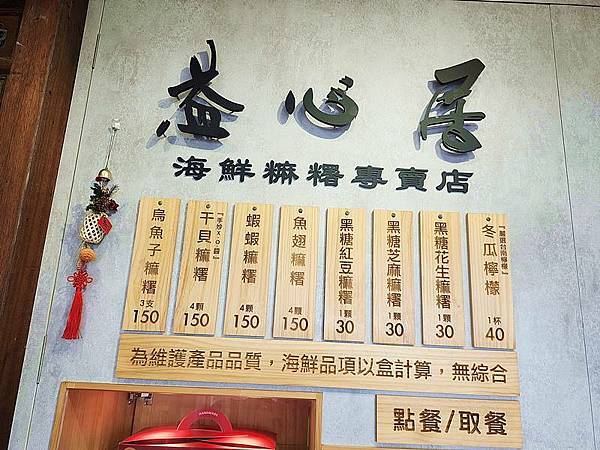 益心居
海鮮嘛糬專賣店
烏魚子嘛糬
3支
150
『手炒XO醬』
干貝嘛糬
4顆
150
蝦蝦嘛糬
4顆
150
魚翅嘛糬
4顆
150
黑糖紅豆嘛糬
1顆
30
黑糖芝麻嘛糬
1顆
30
黑糖花生嘛糬
1顆
30
『嚴選台南檸檬』
冬瓜檸檬
1杯
40
為維護產品品質，海鮮品項以盒計算，無綜合
點餐/取餐